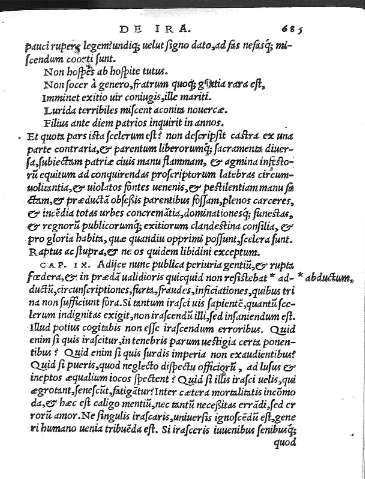 DE IRA. 685
pauci rupere legem: undiq; uelut signo dato, ad fas nefasq; mi-
scendum coorti sunt.
Non hospes ab hospite tutus.
Non socer à genero, fratrum quoq; gratia rara est,
Imminet exitio uir coniugis, ille mariti.
Lurida terribiles miscent aconita nouercæ.
Filius ante diem patrios inquirit in annos.
Et quota pars ista scelerum est? non descripsit castra ex una
parte contraria, & parentum liberorumq; sacramenta diuer-
sa, subiectam patriæ ciuis manu flammam, & agmina infesto-
rũ equitum ad conquirendas proscriptorum latebras circum-
uolitantia, & uiolatos fontes uenenis, & pestilentiam manu fa
ctam, & præductã obsessis parentibus fossam, plenos carceres,
& incẽdia totas urbes concremãtia, dominationesq; funestas,
& regnorũ publicorumq; exitiorum clandestina consilia, &
pro gloria habita, quæ quandiu opprimi possunt, scelera sunt.
Raptus ac stupra, & ne os quidem libidini exceptum.
CAP. IX. Adijce nunc publica periuria gentiũ, & rupta
fœdera, & in prædã ualidioris quicquid non resistebat * ad- * abductum,
ductũ, circunscriptiones, furta, fraudes, inficiationes, quibus tri
na non sufficiunt fora. Si tantum irasci uis sapientẽ, quantũ sce-
lerum indignitas exigit, non irascendũ illi, sed insaniendum est.
Illud potius cogitabis non esse irascendum erroribus. Quid
enim si quis irascitur, in tenebris parum uestigia certa ponen-
tibus? Quid enim si quis surdis imperia non exaudientibus?
Quid si pueris, quod neglecto dispectu officiorũ, ad lusus &
ineptos æqualium iocos spectent? Quid si illis irasci uelis, qui
ægrotant, senescũt, fatigãtur? Inter cætera mortalitatis incõmo
da, & hæc est caligo mentiũ, nec tantũ necessitas errãdi, sed er
rorũ amor. Ne singulis irascaris, uniuersis ignoscẽdũ est, gene
ri humano uenia tribuẽda est. Si irasceris iuuenibus senibusq;
quod